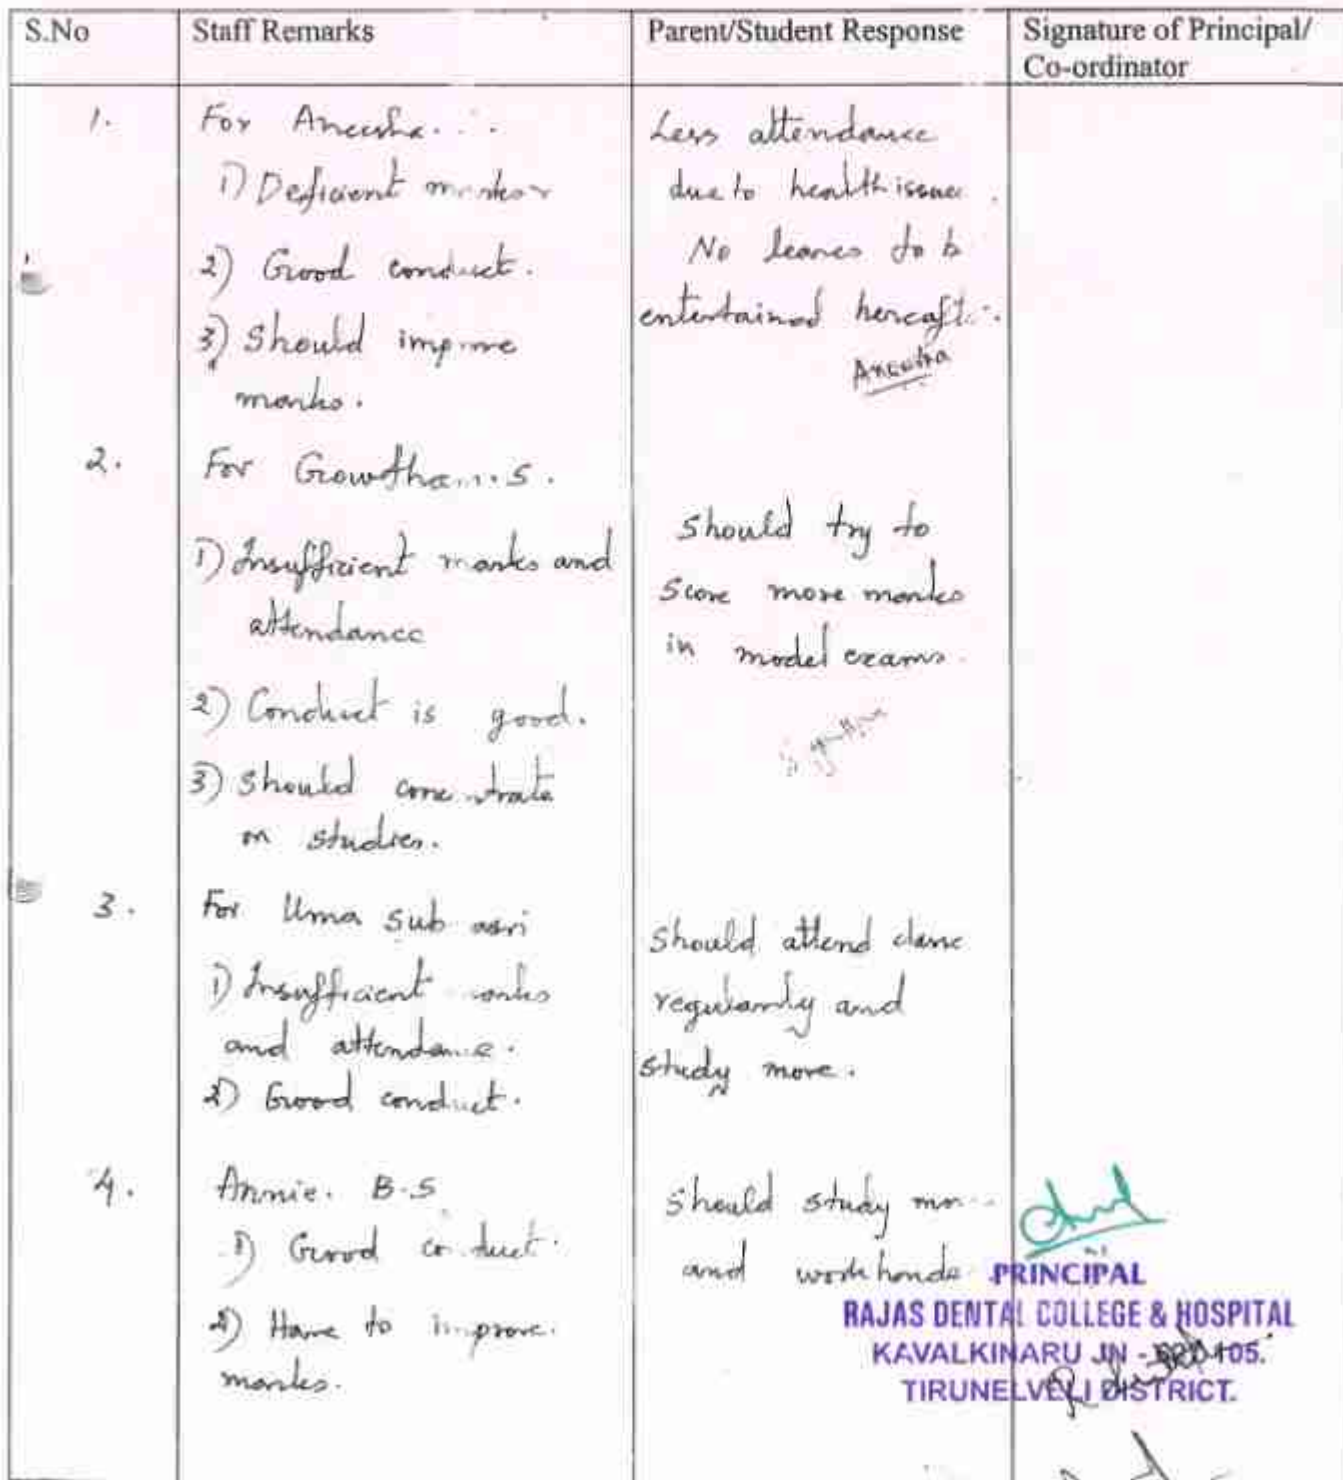 S.No
Staff Remarks
Parent/Student Response
Signature of Principal/
Co-ordinator
1.
For Aneesha.
1) Deficient marks
2) Good conduct.
3) Should improve
marks.
Less attendance
due to health issue.
No leaves to b
entertained hereaft
Aneesha
2.
For Gowtham.S.
1) Insufficient marks and
attendance
2) Conduct is good.
3) Should concentrate
on studies.
Should try to
Score more marks
in model exams.
3.
For Uma Sub
1) Insufficient marks
and attendance.
2) Good conduct.
Should attend class
regularly and
study more.
4.
Annie. B.S
1) Good conduct.
2) Have to improve.
marks.
Should study
and work
PRINCIPAL
RAJAS DENTAL COLLEGE & HOSPITAL
KAVALKINARU JN - 105.
TIRUNELVELI DISTRICT.